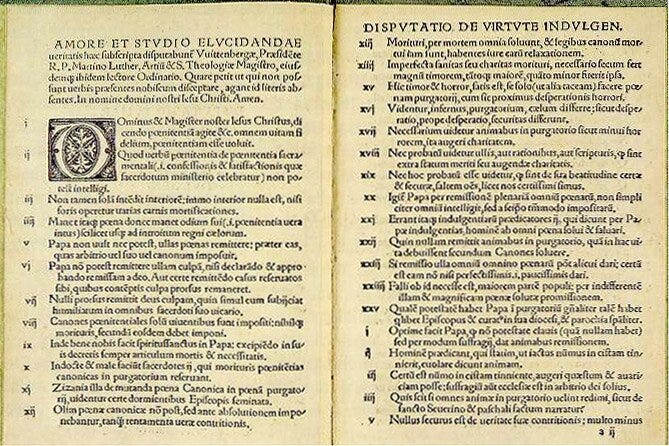 AMORE ET STVDIO ELVCIDANDAE
ueritatis hæc subscripta disputabunt̃ Vuittenbergæ, Præsidẽte
R. P. Martino Luther, Artiũ & S. Theologiæ Magistro, eius‑
demq̃ ibidem lectore Ordinario. Quare petit ut qui non pos‑
sunt uerbis præsentes nobiscum disceptare, agant id literis ab‑
sentes. In nomine domini nostri Iesu Christi. Amen.
i Ominus & Magister noster Iesus Christus, di‑
cendo pœnitentiã agite &c. omnem uitam fi
delium, pœnitentiam esse uoluit.
ij Quod uerbũ pœnitentia de pœnitentia sacra
mentali (.i. confessionis & satisfactionis quæ
sacerdotum ministerio celebratur) non po‑
test intelligi.
iij Non tamen solã intẽdit interiorẽ; immo interior nulla est, nisi
foris operetur uarias carnis mortificationes.
iiij Manet itaq̃ pœna donec manet odium sui (.i. pœnitentia uera
intus) scilicet usq̃ ad introitum regni cælorum.
v Papa non uult nec potest, ullas pœnas remittere; præter eas,
quas arbitrio uel suo uel canonum imposuit.
vi Papa nõ potest remittere ullam culpã, nisi declarãdo & appro
bando remissam a deo. Aut certe remittẽdo casus reseruatos
sibi, quibus contẽptis culpa prorsus remaneret.
vij Nulli prorsus remittit deus culpam, quin simul eum subijciat
humiliatum in omnibus sacerdoti suo uicario.
viij Canones pœnitentiales solũ uiuentibus sunt impositi; nihilq̃
morituris, secundũ eosdem debet imponi.
ix Inde bene nobis facit spiritussanctus in Papa; excipiẽdo in su
is decretis semper articulum mortis & necessitatis.
x Indocte & male faciũt sacerdotes ij, qui morituris pœnitẽtias
canonicas in purgatorium reseruant.
xi Zizania illa de mutanda pœna Canonica in pœnã purgato‑
rij, uidentur certe dormientibus Episcopis seminata.
xij Olim pœnæ canonicæ nõ post, sed ante absolutionem impo‑
nebantur, tanq̃ tentamenta ueræ contritionis.
DISPVTATIO DE VIRTVTE INDVLGEN.
xiij Morituri, per mortem omnia soluunt, & legibus canonũ mor
tui iam sunt, habentes iure earũ relaxationem.
xiiij Imperfecta sanitas seu charitas morituri, necessario secum fert
magnũ timorem, tãtoq̃ maiorẽ, quãto minor fuerit ipsa.
xv Hic timor & horror, satis est, se solo (ut alia taceam) facere pœ
nam purgatorij, cum sit proximus desperationis horrori.
xvi Videntur, infernus, purgatorium, cælum differre; sicut despe‑
ratio, prope desperatio, securitas differunt.
xvij Necessarium uidetur animabus in purgatorio sicut minui hor
rorem, ita augeri charitatem.
xviij Nec probatũ uidetur ullis, aut rationibus, aut scripturis, q̃ sint
extra statum meriti seu augendæ charitatis.
xix Nec hoc probatũ esse uidetur, q̃ sint de sua beatitudine certæ
& securæ, saltem oẽs, licet nos certissimi simus.
xx Igit̃ Papa per remissionẽ plenariã omniũ pœnarũ, non simpli
citer omniũ intelligit, sed a seipso tãtũmodo impositarũ.
xxi Errant itaq̃ indulgentiarũ prædicatores ij, qui dicunt per Pa‑
pæ indulgentias, hominẽ ab omni pœna solui & saluari.
xxij Quin nullam remittit animabus in purgatorio, quã in hac ui‑
ta debuissent secundum Canones soluere.
xxiij Si remissio ulla omniũ omnino pœnarũ põt alicui dari; certũ
est eam nõ nisi perfectissimis .i. paucissimis dari.
xxiiij Falli ob id necesse est, maiorem partẽ populi; per indifferentẽ
illam & magnificam pœnæ solutæ promissionem.
xxv Qualẽ potestatẽ habet Papa in purgatoriũ gñaliter talẽ habet
q̃libet Episcopus & curat̃ in sua diocesi, & parochia sp̃aliter.
i Optime facit Papa, q̃ nõ potestate clauis (quã nullam habet)
sed per modum suffragij, dat animabus remissionem.
ij Hominẽ prædicant, qui statim, ut iactus nũmus in cistam tin‑
nierit, euolare dicunt animam.
iij Certũ est nũmo in cistam tinniente, augeri quæstum & auari‑
ciam posse; suffragiũ aũt ecclesiæ est in arbitrio dei solius.
iiij Quis scit si omnes animæ in purgatorio uelint redimi, sicut de
sancto Seuerino & paschali factum narratur.
v Nullus securus est de ueritate suæ contritionis; multo minus
a ij